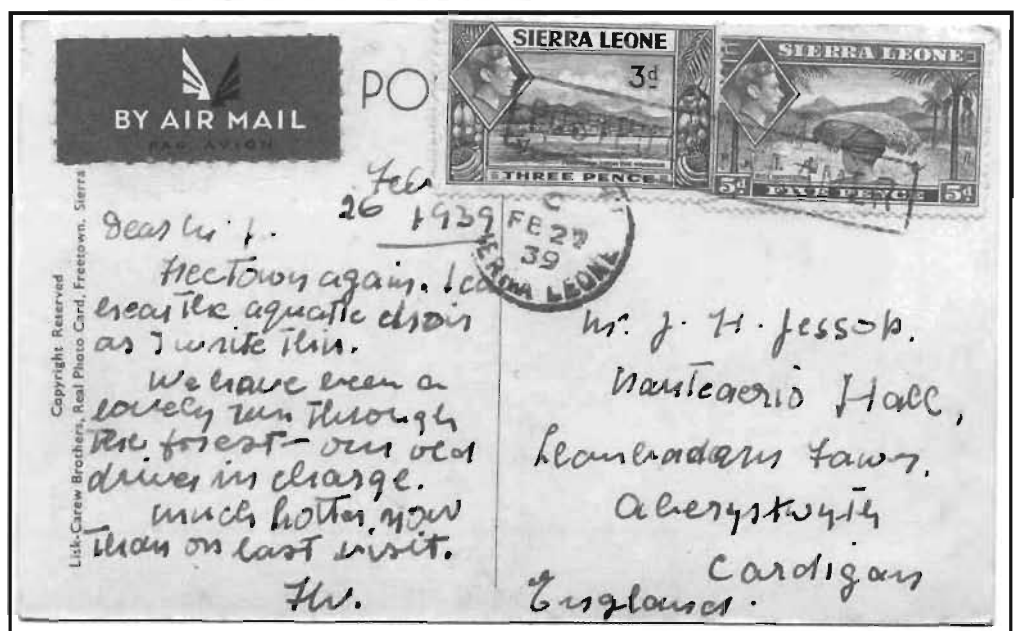 BY AIR MAIL
PAR AVION
PO
SIERRA LEONE
3d
THREE PENCE
SIERRA LEONE
5d FIVE PENCE 5d
FE 27
39
SIERRA LEONE
Copyright Reserved
Lisk-Carew Brothers, Real Photo Card, Freetown, Sierra
Feb
26 1939
Dear Mr J.
FreeTown again. I can
hear the aquatic choir
as I write this.
We have been a
lovely run through
the forest – our old
driver in charge.
Much hotter now
than on last visit.
HW.
Mr. J. H. Jessop.
Nanteaerio Hall,
Llanbadarn Fawr.
Aberystwyth
Cardigan
England.